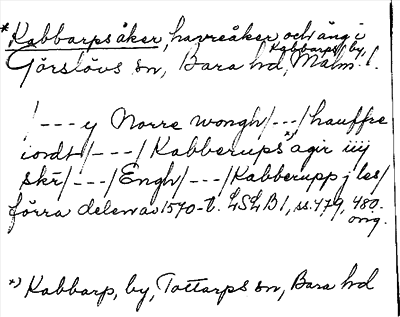 *Kabbarpsåker, havreåker och äng i
Kabbarps by,
Görslövs sn, Bara hd, Malm. l.
/---y Norre wongh/---/hauffre
iordt/---/Kabberups*) agir iiij
skr/---/Engh/---/Kabberupp j les/
förra delen av 1570-t. LSLB1, ss. 479, 480.
orig.
*) Kabbarp, by, Tottarps sn, Bara hd